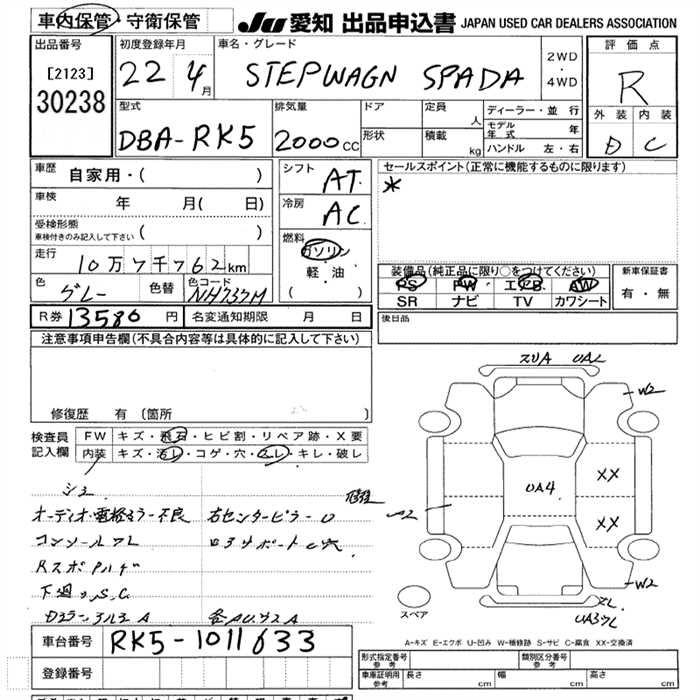 車内保管・守衛保管
JU 愛知 出品申込書 JAPAN USED CAR DEALERS ASSOCIATION
出品番号
[2123]
30238
初度登録年月
22 4月
車名・グレード
STEPWAGN SPADA
2WD
・
4WD
評価点
R
外装 内装
D C
型式
DBA-RK5
排気量
2000cc
ドア
形状
定員
人
積載
kg
ディーラー・並行
モデル年式 年
ハンドル 左・右
車歴 自家用・( )
車検 年 月( 日)
受検形態
車検付きのみ記入して下さい ( )
走行
10万7千762km
色 グレー
色替
色コード
NH737M
シフト
AT
冷房
AC
燃料
ガソリン
軽・油
( )
セールスポイント(正常に機能するものに限ります)
*
装備品(純正品に限り〇をつけてください)
PS PW エアB AW
SR ナビ TV カワシート
新車保証書
有・無
R券 13580 円
名変通知期限 月 日
後日品
注意事項申告欄(不具合内容等は具体的に記入して下さい)
修復歴 有(箇所 )
検査員
記入欄
FW キズ・飛石・ヒビ割・リペア跡・X要
内装 キズ・汚レ・コゲ・穴・スレ・キレ・破レ
シミ
オーディオ・電格ミラー不良
右センターピラー
コンソール
下廻り S.C
ZUA UAL
W2
UA4
XX
XX
W2
スペア
A-キズ E-エクボ U-凹み W-補修跡 S-サビ C-腐食 XX-交換済
車台番号 RK5-1011633
登録番号
形式指定番号
参考
類別区分番号
参考
車庫証明用
参考
長さ cm
幅 cm
高さ cm